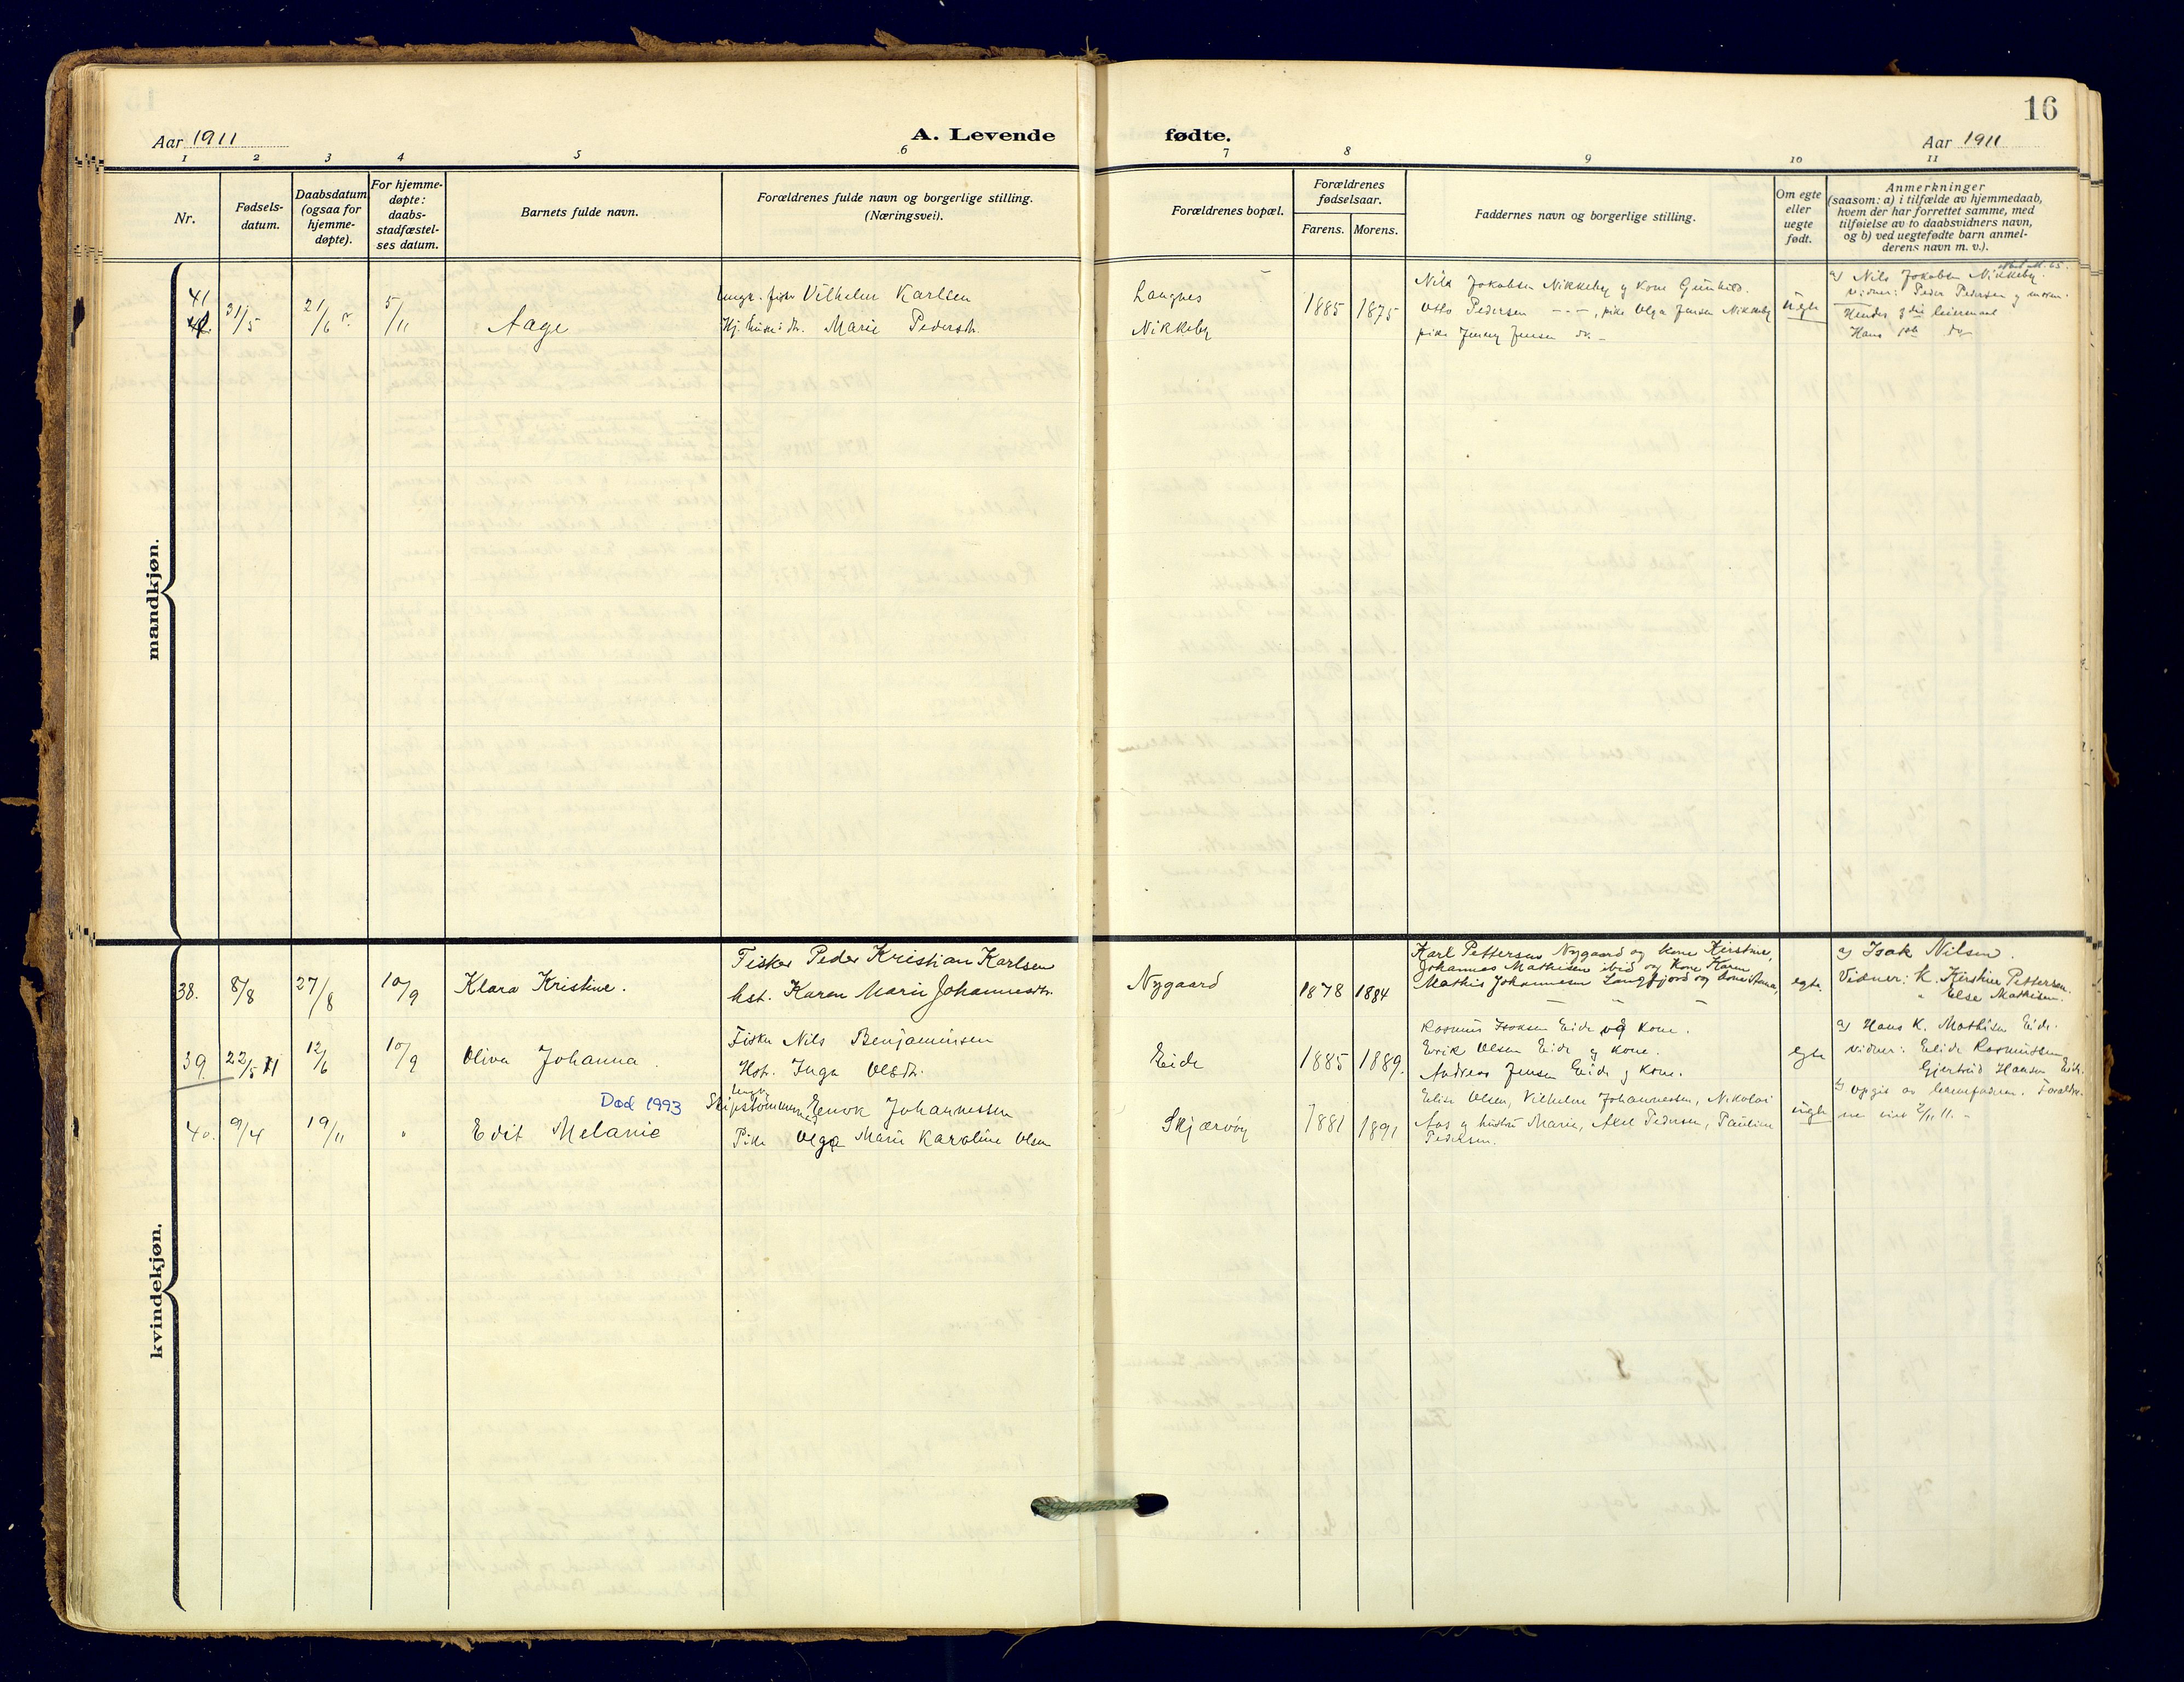 16
Aar 1911
A. Levende
fødte.
Aar 1911
1 2 3 4 5 6 7 8 9 10 11
Nr.
Fødsels-
datum.
Daabsdatum
(ogsaa for
hjemme-
døpte).
For hjemme-
døpte:
daabs-
stadfæstel-
ses datum.
Barnets fulde navn.
Forældrenes fulde navn og borgerlige stilling.
(Næringsvei).
Forældrenes bopæl.
Forældrenes
fødselsaar.
Farens. Morens.
Faddernes navn og borgerlige stilling.
Om egte
eller
uegte
født.
Anmerkninger
(saasom: a) i tilfælde av hjemmedaab,
hvem der har forrettet samme, med
tilføielse av to daabsvidners navn,
og b) ved uegtefødte barn anmel-
derens navn m. v.).
mandkjøn.
41
31/5
21/6
5/11
Aage
Ungk. fisker Vilhelm Karlsen
Marie Pedersdt.
Langnes
Nikkeby
1885 1875
Nils Jokobsen Nikkeby og Kone Gunhild.
Otto Pedersen - - -, pike Olga Jensen Nikkeby
pike Jenny Jensen do. -
uegte
a) Nils Jokobsen Nikkeby
Vidner: Peder Pedersen og moren.
Hendes 3die leiermaal
Hans 1ste do
kvindekjøn.
38. 8/8 27/8 10/9 Klara Kristine.
Fisker Peder Kristian Karlsen
hst. Karen Marie Johannesdtr.
Nygaard
1878 1884
Karl Pettersen Nygaard og kone Kirstine,
Johannes Mathisen ibid og Kone Karen
Mathis Johannesen Langfjord og kone Anna,
egte.
a) Isak Nilsen.
Vidner: K. Kirstine Pettersen.
" Else Mathisen.
39. 22/5 11 12/6 10/9 Oliva Johanna.
Fisker Nils Benjaminsen
Hst. Inga Olsdt.
Eide
1885 1889.
Rasmus Isaksen Eide og Kone.
Erik Olsen Eide og kone.
Andreas Jensen Eide og kone.
egte
a) Hans K. Mathisen Eide.
Vidner: Elide Rasmussen
Gjertrud Hansen Eide.
Død 1993
40. 9/4 19/11 " Edit Melanie
Ungk.
Skipstømmermand Enok Johannessen
Pike Olga Marie Karoline Olsen
Skjærvøy
1881 1891
Elise Olsen, Vilhelm Johannessen, Nikolai
Aas og hustru Marie, Aksel Pedersen, Pauline
Pedersen.
uegte
b) opgit av barnefaderen. Forældre-
ne viet 2/11 11. -